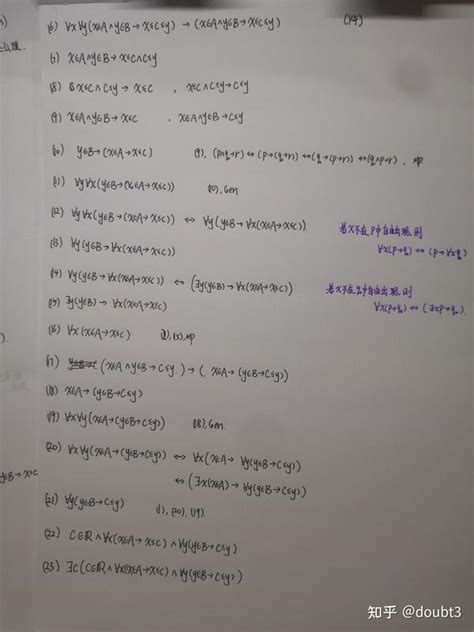 (6) ∀x∀y(x∈A∧y∈B→x≤c≤y) → (x∈A∧y∈B→x≤c≤y) (∀4)
么理.
(7) x∈A∧y∈B→x≤c∧c≤y
(8) x≤c∧c≤y→x≤c , x≤c∧c≤y→c≤y
(9) x∈A∧y∈B→x≤c , x∈A∧y∈B→c≤y
(10) y∈B→(x∈A→x≤c) (9), (p∧q→r)↔(p→(q→r))↔(q→(p→r))↔(q∧p→r), MP
(11) ∀y∀x(y∈B→(x∈A→x≤c)) (10), Gen
(12) ∀y∀x(y∈B→(x∈A→x≤c)) ↔ ∀y(y∈B→∀x(x∈A→x≤c)) 若x不在p中自由出现,则
∀x(p→q)↔(p→∀xq)
(13) ∀y(y∈B→∀x(x∈A→x≤c))
(14) ∀y(y∈B→∀x(x∈A→x≤c)) ↔ (∃y(y∈B)→∀x(x∈A→x≤c)) 若x不在q中自由出现,则
∀x(p→q)↔(∃xp→q)
(15) ∃y(y∈B)→∀x(x∈A→x≤c)
(16) ∀x(x∈A→x≤c) (15), MP
(17) (x∈A∧y∈B→c≤y)→(x∈A→(y∈B→c≤y))
(18) x∈A→(y∈B→c≤y)
(19) ∀x∀y(x∈A→(y∈B→c≤y)) (18), Gen.
(20) ∀x∀y(x∈A→(y∈B→c≤y)) ↔ ∀x(x∈A→∀y(y∈B→c≤y))
↔(∃x(x∈A)→∀y(y∈B→c≤y))
y∈B→x≤c
(21) ∀y(y∈B→c≤y) (20), (19).
(22) c∈R∧∀x(x∈A→x≤c)∧∀y(y∈B→c≤y)
(23) ∃c(c∈R∧∀x(x∈A→x≤c)∧∀y(y∈B→c≤y))
知乎 @doubt3